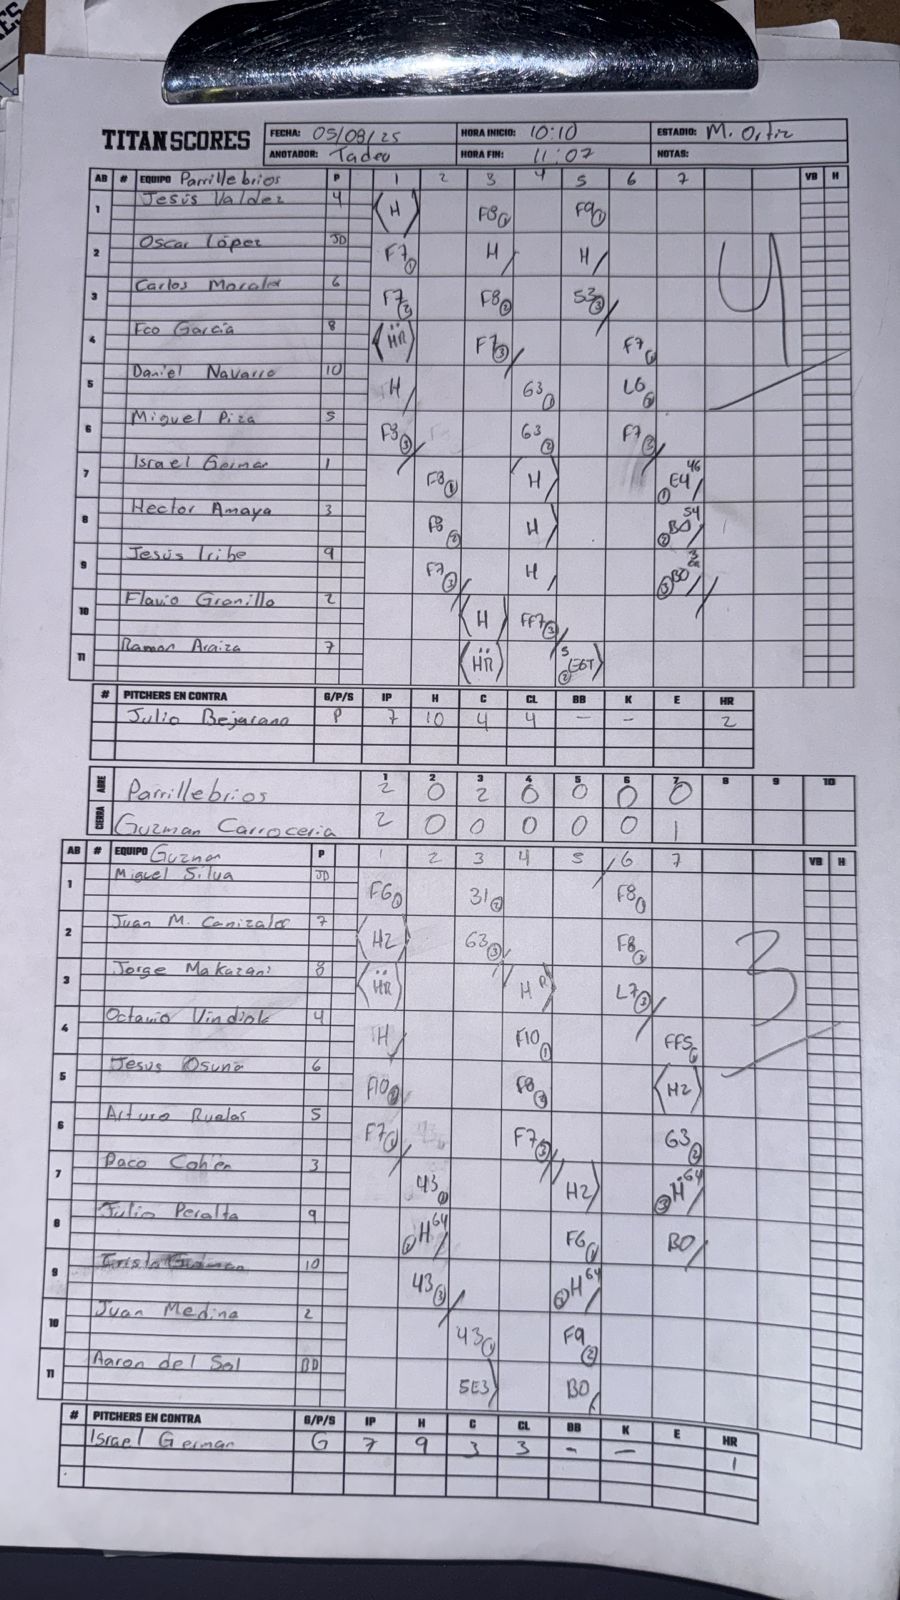 TITAN SCORES
FECHA: 05/08/25 HORA INICIO: 10:10 ESTADIO: M. Ortiz
ANOTADOR: Tadeo HORA FIN: 11:07 NOTAS:
AB # EQUIPO Parrillebrios P 1 2 3 4 5 6 7 VB H
1 Jesús Valdez 4 H F8① F9①
2 Oscar López JD F7① H H
3 Carlos Morales 6 F7② F8② 53③
4 Fco García 8 HR F7③ F7①
5 Daniel Navarro 10 H 63① L6②
6 Miguel Piza 5 F8③ 63② F7③
7 Israel German 1 F8① H ①E4 46
8 Hector Amaya 3 F8② H ②BO 54
9 Jesús Iribe 9 F7③ H ③BO
10 Flavio Granillo 2 H FF7③
11 Ramon Araiza 7 HR 5 ②E6T
4
# PITCHERS EN CONTRA G/P/S IP H C CL BB K E HR
Julio Bejarano P 7 10 4 4 - - 2
1 2 3 4 5 6 7 8 9 10
ABRE Parrillebrios 2 0 2 0 0 0 0
CIERRA Guzman Carroceria 2 0 0 0 0 0 1
AB # EQUIPO Guzman P 1 2 3 4 5 6 7 VB H
1 Miguel Silva JD F6① 31② F8①
2 Juan M. Canizales 7 H2 63③ F8②
3 Jorge Makazani 8 HR H L7③
4 Octavio Vindiola 4 H F10① FF5①
5 Jesus Osuna 6 F10② F8② H2
6 Arturo Ruelas 5 F7③ F7③ 63②
7 Paco Cohen 3 43① H2 ③H 64
8 Julio Peralta 9 ②H 64 F6① BO
9 10 43③ ③H 64
10 Juan Medina 2 43① F9②
11 Aaron del Sol BD 5E3 BO
3
# PITCHERS EN CONTRA G/P/S IP H C CL BB K E HR
Israel German G 7 9 3 3 - - 1